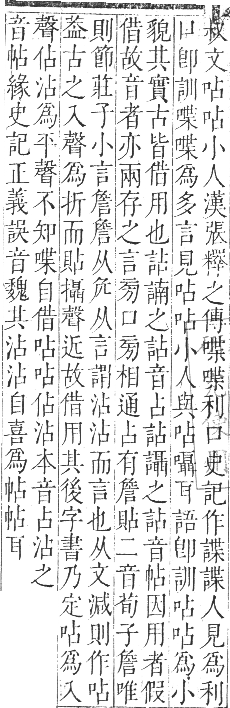 故文呫呫小人漢張釋之傳喋喋利口史記作諜諜人見爲利
口卽訓喋喋爲多言見呫呫小人與呫囁耳語卽訓呫呫爲小
貌其實古皆借用也詀諵之詀音占詀讘之詀音帖因用者假
借故音者亦兩存之言旁口旁相通占有詹貼二音荀子詹唯
則節莊子小言詹詹从𠂉从言謂沾沾而言也从文減則作呫
葢古之入聲爲折而貼攝聲近故借用其後字書乃定呫爲入
聲佔沾爲平聲不知喋自借呫呫佔沾本音占沾之
音帖緣史記正義誤音魏其沾沾自喜爲帖帖耳